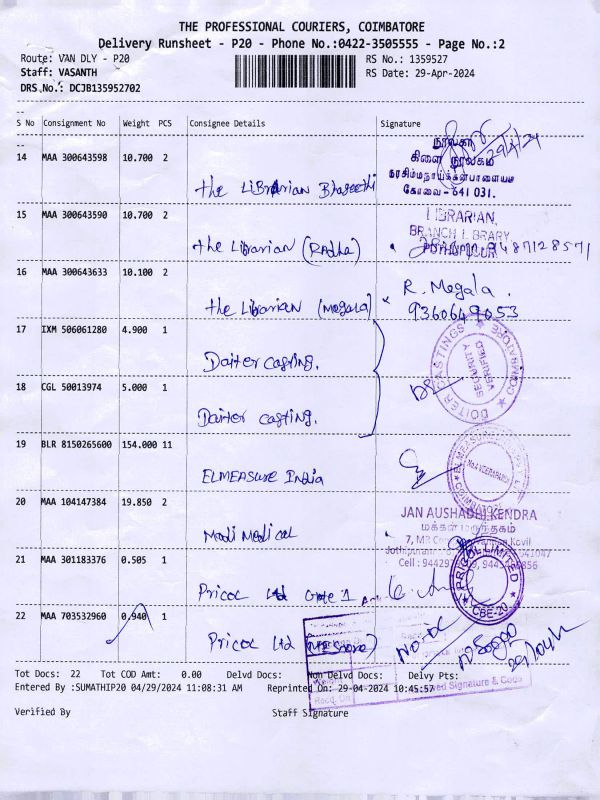 THE PROFESSIONAL COURIERS, COIMBATORE
Delivery Runsheet - P20 - Phone No.:0422-3505555 - Page No.:2
Route: VAN DLY - P20
RS No.: 1359527
Staff: VASANTH
RS Date: 29-Apr-2024
DRS No.: DCJB135952702
S No Consignment No Weight PCS Consignee Details Signature
14 MAA 300643598 10.700 2
the Librarian Bharathi
கிளை நூலகம்
நரசிம்மநாய்க்கன்பாளையம்
கோவை - 641 031.
29/4/24
15 MAA 300643590 10.700 2
the Librarian (Radha)
LIBRARIAN,
BRANCH LIBRARY
9487128571
16 MAA 300643633 10.100 2
the Librarian (Megala)
R. Megala.
9360649053
17 IXM 506061280 4.900 1
Doiter casting.
DOITER CASTINGS
COIMBATORE
SECURITY
VERIFIED
18 CGL 50013974 5.000 1
Doiter casting.
19 BLR 8150265600 154.000 11
ELMEASURE India
20 MAA 104147384 19.850 2
Modi Medical
JAN AUSHADHI KENDRA
மக்கள் மருந்தகம்
21 MAA 301183376 0.505 1
Pricol Ltd Gate 1
PRICOL LIMITED
CBE-20
22 MAA 703532960 0.940 1
Pricol Ltd
Tot Docs: 22 Tot COD Amt: 0.00 Delvd Docs: Non Delvd Docs: Delvy Pts:
Entered By :SUMATHIP20 04/29/2024 11:08:31 AM Reprinted On: 29-04-2024 10:45:57
Signature & Code
Verified By Staff Signature